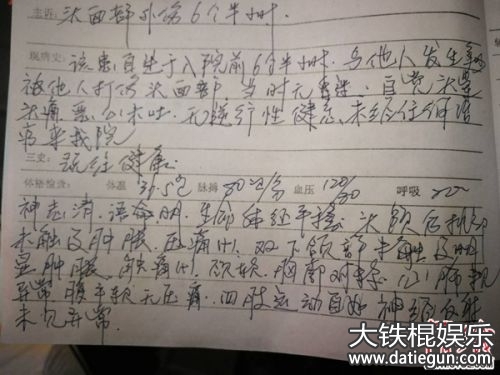 主诉: 头面部外伤6个半小时.
现病史: 该患自述于入院前6个半小时.与他人发生
被他人打伤头面部,当时无昏迷.自觉头晕
头痛.恶心未吐.无逆行性健忘.未经任何治
来我院
三史: 既往健康.
体格检查: 体温 36.5℃ 脉搏 80次/分 血压 120/80 呼吸
神志清.语言明.生命体征平稳.头颅
未触及肿胀.压痛(+).双下颌部
显肿胀.压痛(+).颈软.胸廓对称.心肺
异常 腹平软无压痛.四肢运动自如 神经反射
未见异常.
大铁棍娱乐
www.datiegun.com